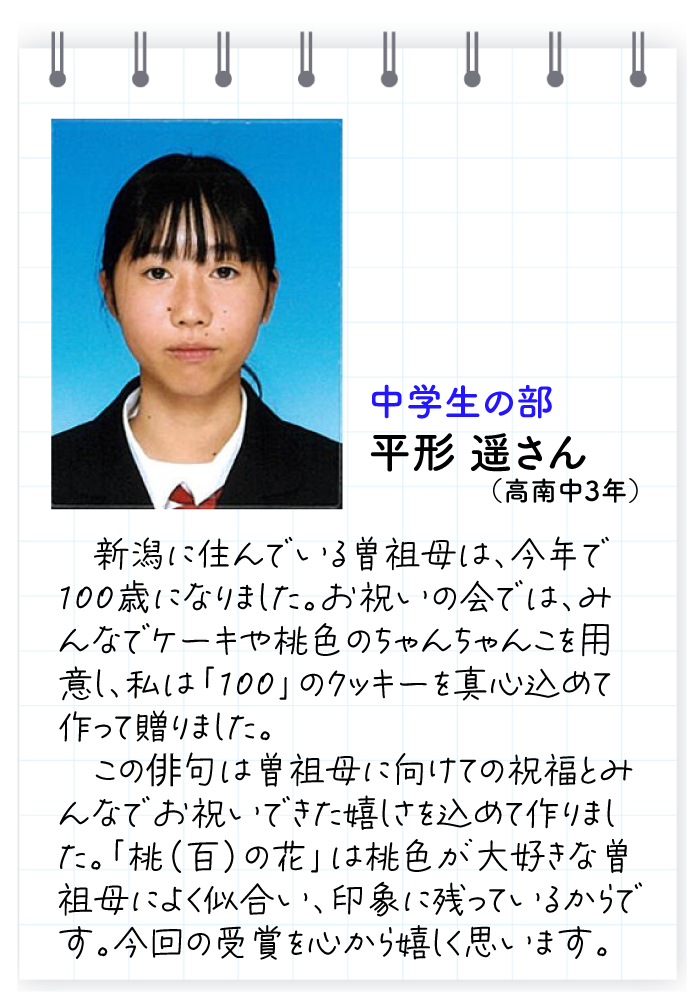 中学生の部
平形 遥さん
（高南中3年）
新潟に住んでいる曽祖母は、今年で
100歳になりました。お祝いの会では、み
んなでケーキや桃色のちゃんちゃんこを用
意し、私は「100」のクッキーを真心込めて
作って贈りました。
この俳句は曽祖母に向けての祝福とみ
んなでお祝いできた嬉しさを込めて作りまし
た。「桃（百）の花」は桃色が大好きな曽
祖母によく似合い、印象に残っているからで
す。今回の受賞を心から嬉しく思います。